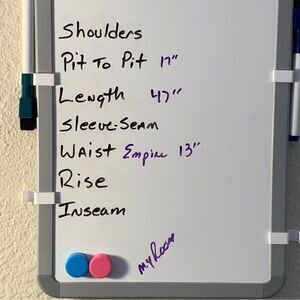 Shoulders
Pit To Pit 17"
Length 47"
Sleeve-Seam
Waist Empire 13"
Rise
Inseam
my Room